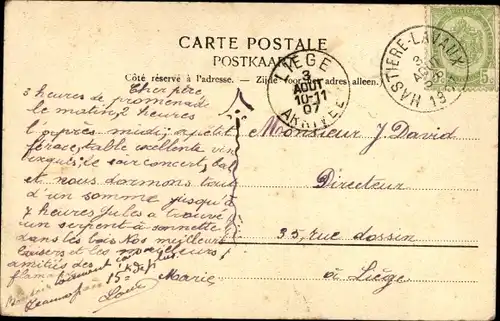 CARTE POSTALE
POSTKAART
Côté réservé à l'adresse. — Zijde voor het adres alleen.
HASTIÈRE-LAVAUX
3
AOUT
LIÈGE
3
AOUT
10-11
07
ARRIVÉE
5
Cher père
3 heures de promenade
le matin, 2 heures
l'après midi, appétit
féroce, table excellente vin
exquis, le soir concert, bal
et nous dormons tous
d'un somme jusqu'à
7 heures Jules a trouvé
un serpent à sonnette
dans les bois Nos meilleurs
baisers et les meilleures
amitiés des
Marie
Monsieur J David
Directeur
35, rue dossin
à Liège